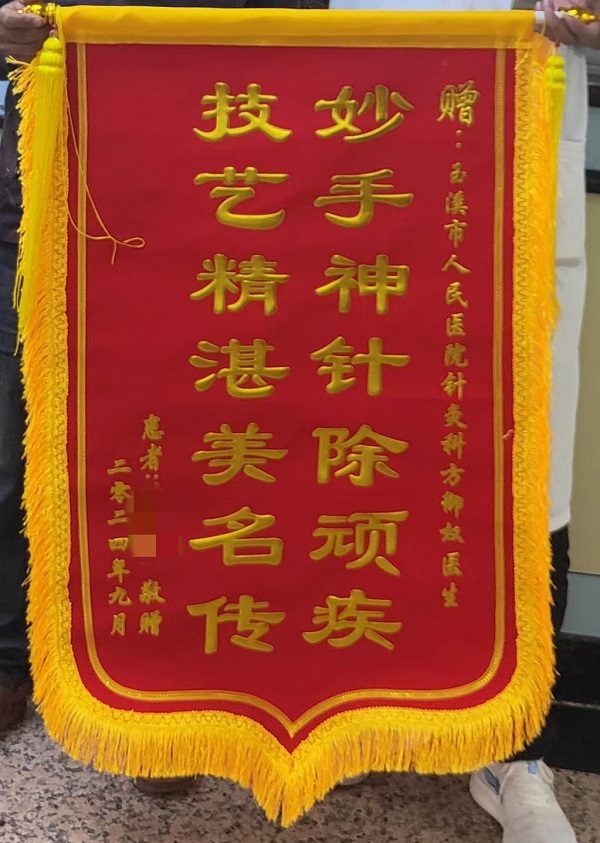 赠：玉溪市人民医院针灸科方柳权医生
妙手神针除顽疾
技艺精湛美名传
患者：
敬赠
二零二四年九月